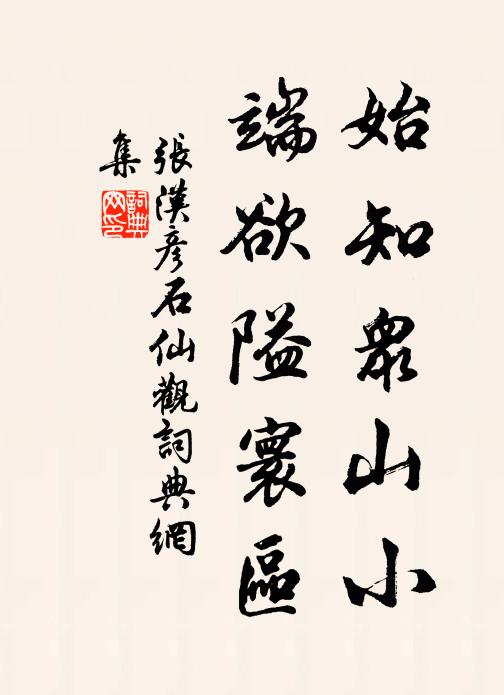 始知眾山小
端欲隘寰區
張漢彥石仙觀詞典網
集
詞典网印